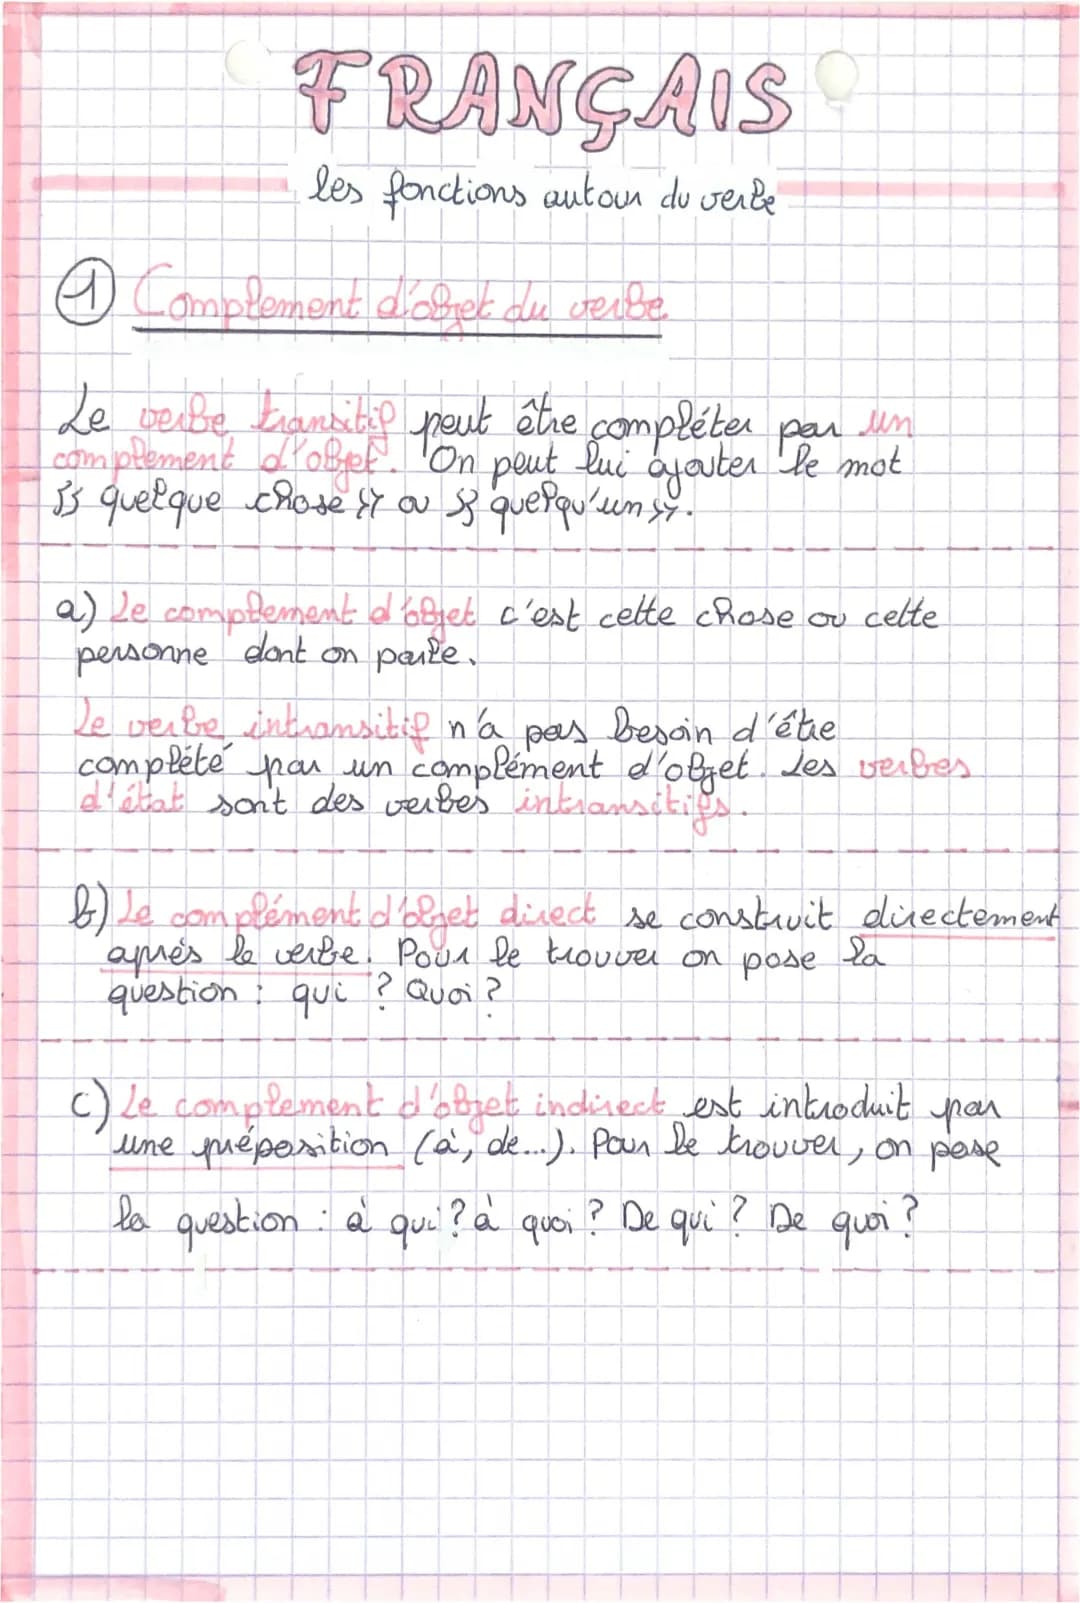 FRANÇAIS
les fonctions autour du verbe
① Complement d'objet du verbe
Le verbe transitif peut être compléter par un
complement d'objet. On peut lui ajouter le mot
« quelque chose » ou « quelqu'un ».
a) Le complement d'objet c'est cette chose ou cette
personne dont on parle.
Le verbe intransitif n'a pas besoin d'être
complété par un complément d'objet. Les verbes
d'état sont des verbes intransitifs.
b) Le complément d'objet direct se construit directement
aprés le verbe. Pour le trouver on pose la
question : qui ? Quoi ?
c) Le complement d'objet indirect est introduit par
une préposition (à, de...). Pour le trouver, on pose
la question : à qui ? à quoi ? De qui ? De quoi ?